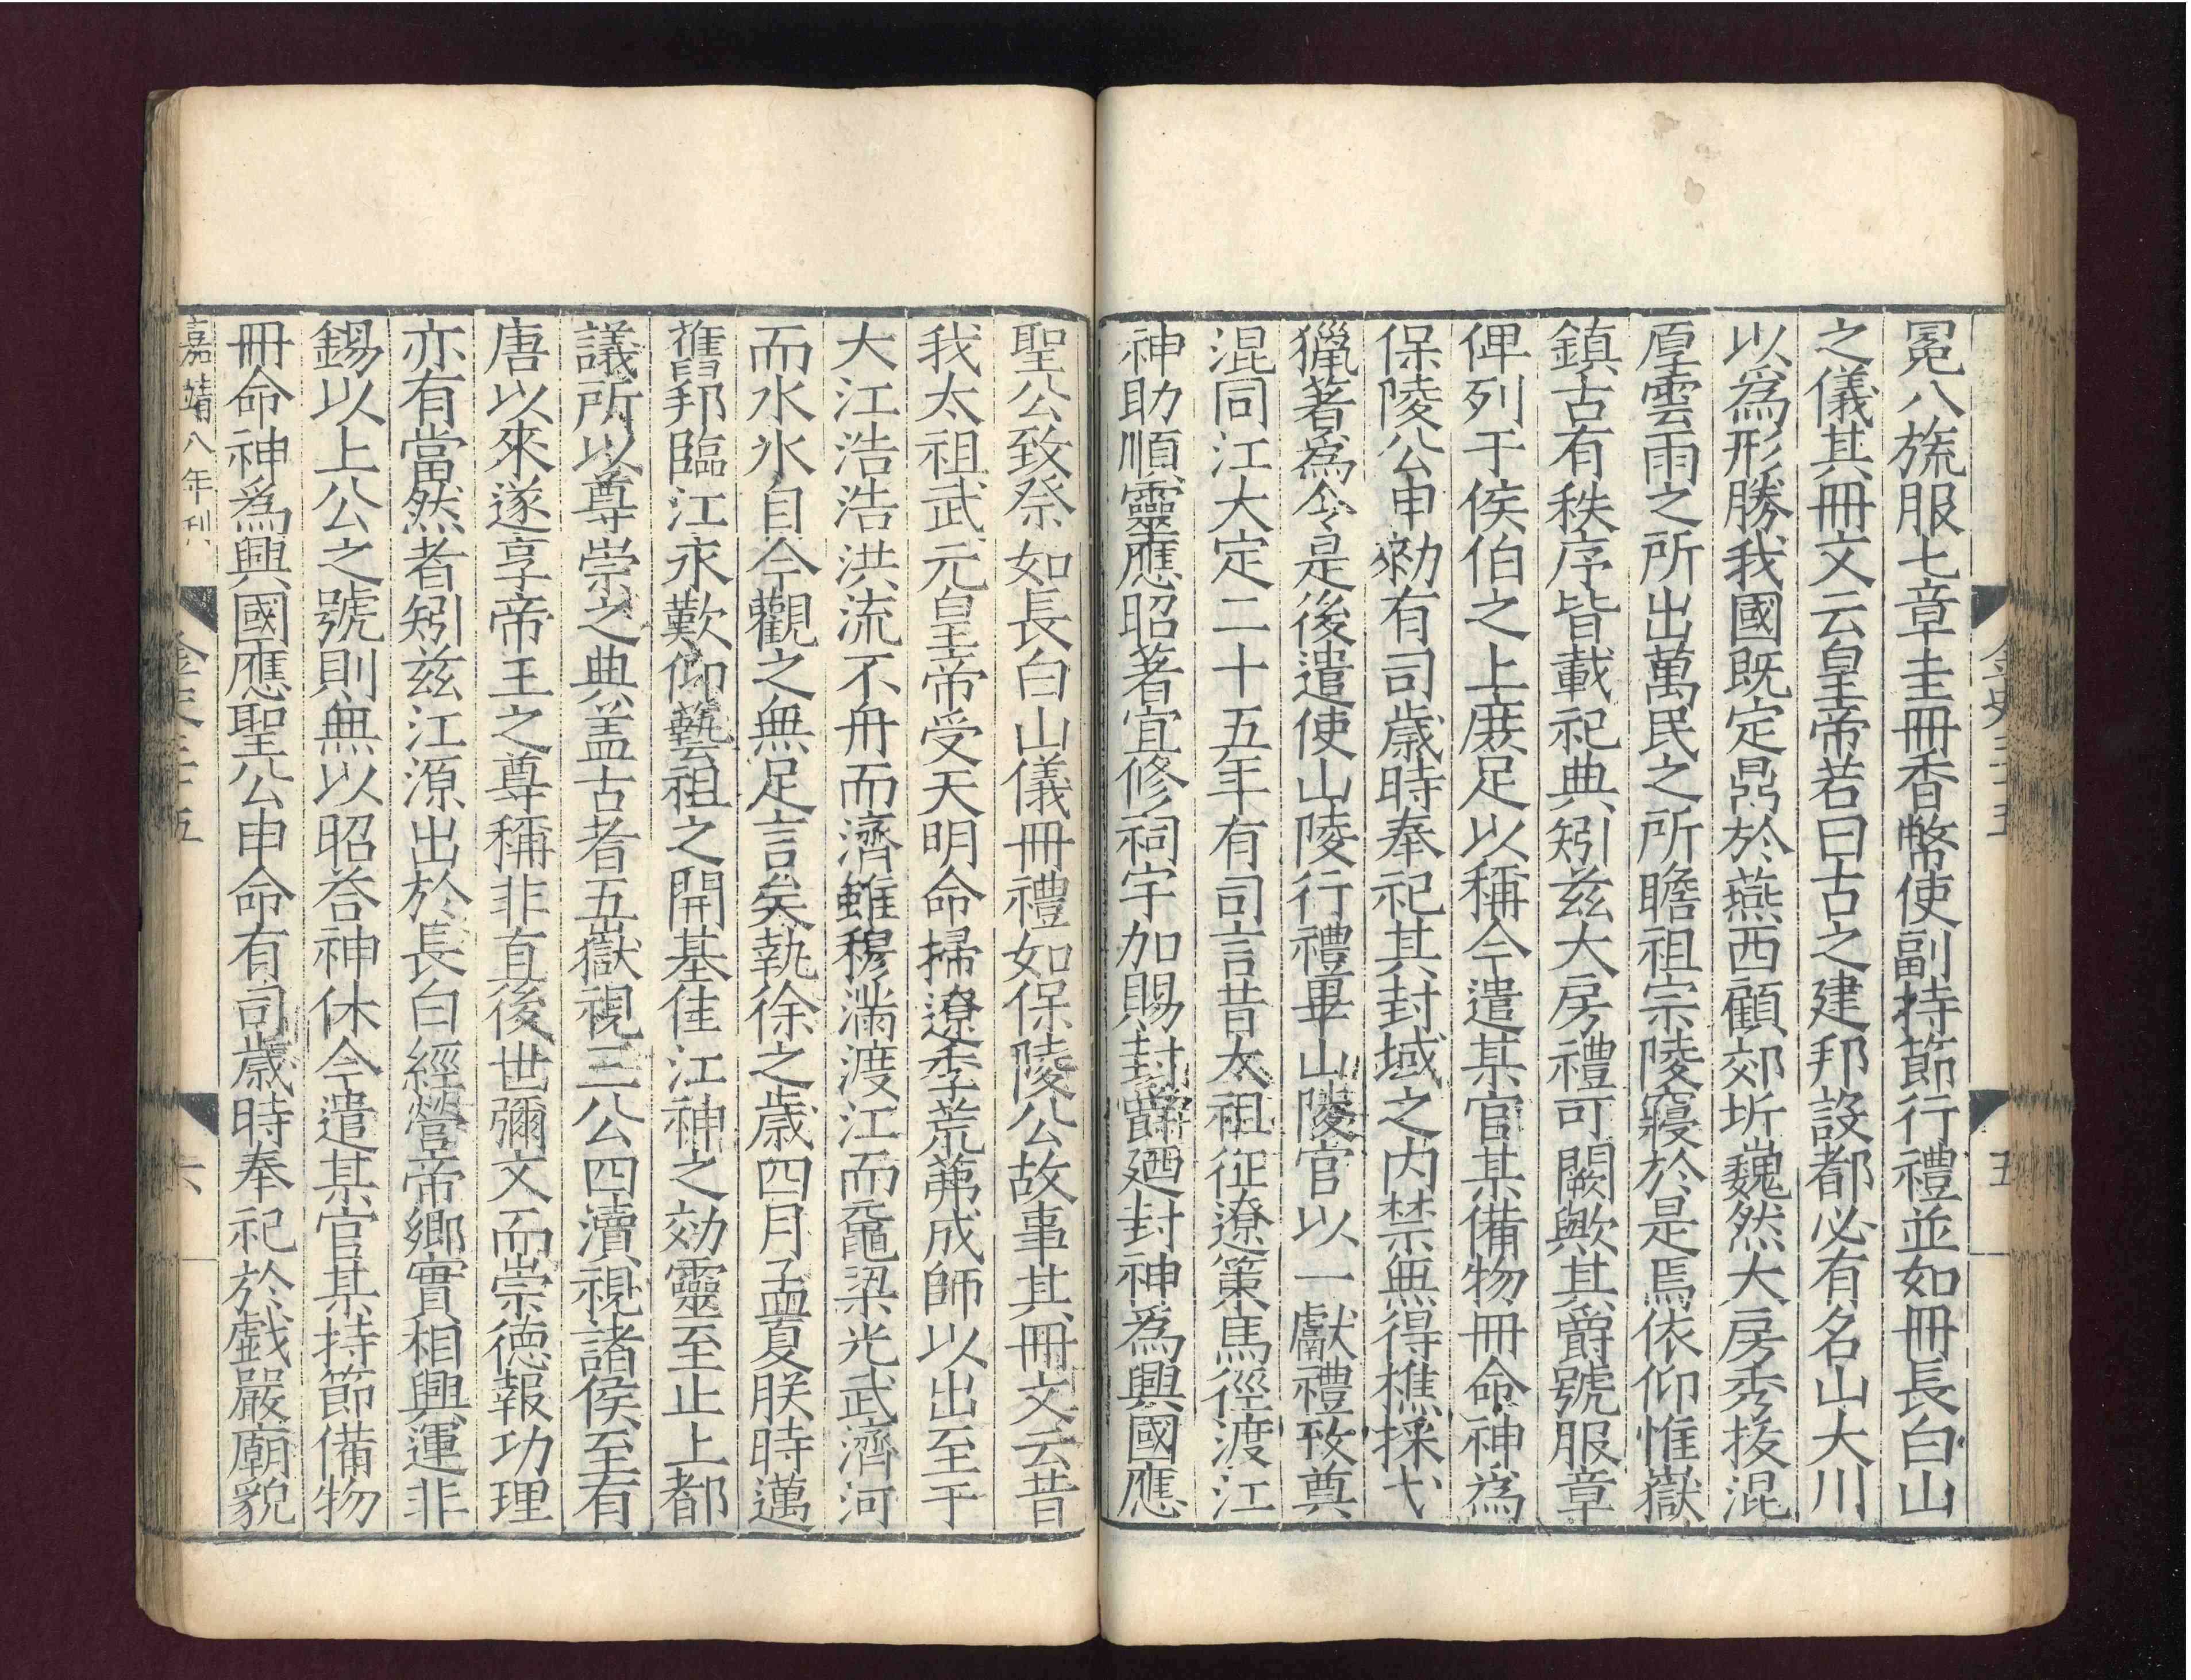 金史三十五
五
冕八旒服七章圭冊香幣使副持節行禮並如冊長白山
之儀其冊文云皇帝若曰古之建邦設都必有名山大川
以爲形勝我國既定鼎於燕西顧郊圻巍然大房秀拔混
厚雲雨之所出萬民之所瞻祖宗陵寢於是焉依仰惟嶽
鎮古有秩序皆載祀典矧兹大房禮可闕歟其爵號服章
俾列于侯伯之上庶足以稱今遣某官某備物冊命神爲
保陵公申勑有司歲時奉祀其封域之内禁無得樵採弋
獵著爲令是後遣使山陵行禮畢山陵官以一獻禮致奠
混同江大定二十五年有司言昔太祖征遼策馬徑渡江
神助順靈應昭著宜修祠宇加賜封爵廼封神爲興國應
聖公致祭如長白山儀冊禮如保陵公故事其冊文云昔
我太祖武元皇帝受天明命掃遼季荒茀成師以出至于
大江浩浩洪流不舟而濟雖穆滿渡江而黿梁光武濟河
而水氷自今觀之無足言矣執徐之歲四月孟夏朕時邁
舊邦臨江永歎仰藝祖之開基佳江神之効靈至止上都
議所以尊崇之典盖古者五嶽視三公四瀆視諸侯至有
唐以來遂享帝王之尊稱非直後世彌文而崇德報功理
亦有當然者矧兹江源出於長白經營帝鄉實相興運非
錫以上公之號則無以昭荅神休今遣某官某持節備物
冊命神爲興國應聖公申命有司歲時奉祀於戲嚴廟貌
嘉靖八年刊
金史三十五
六